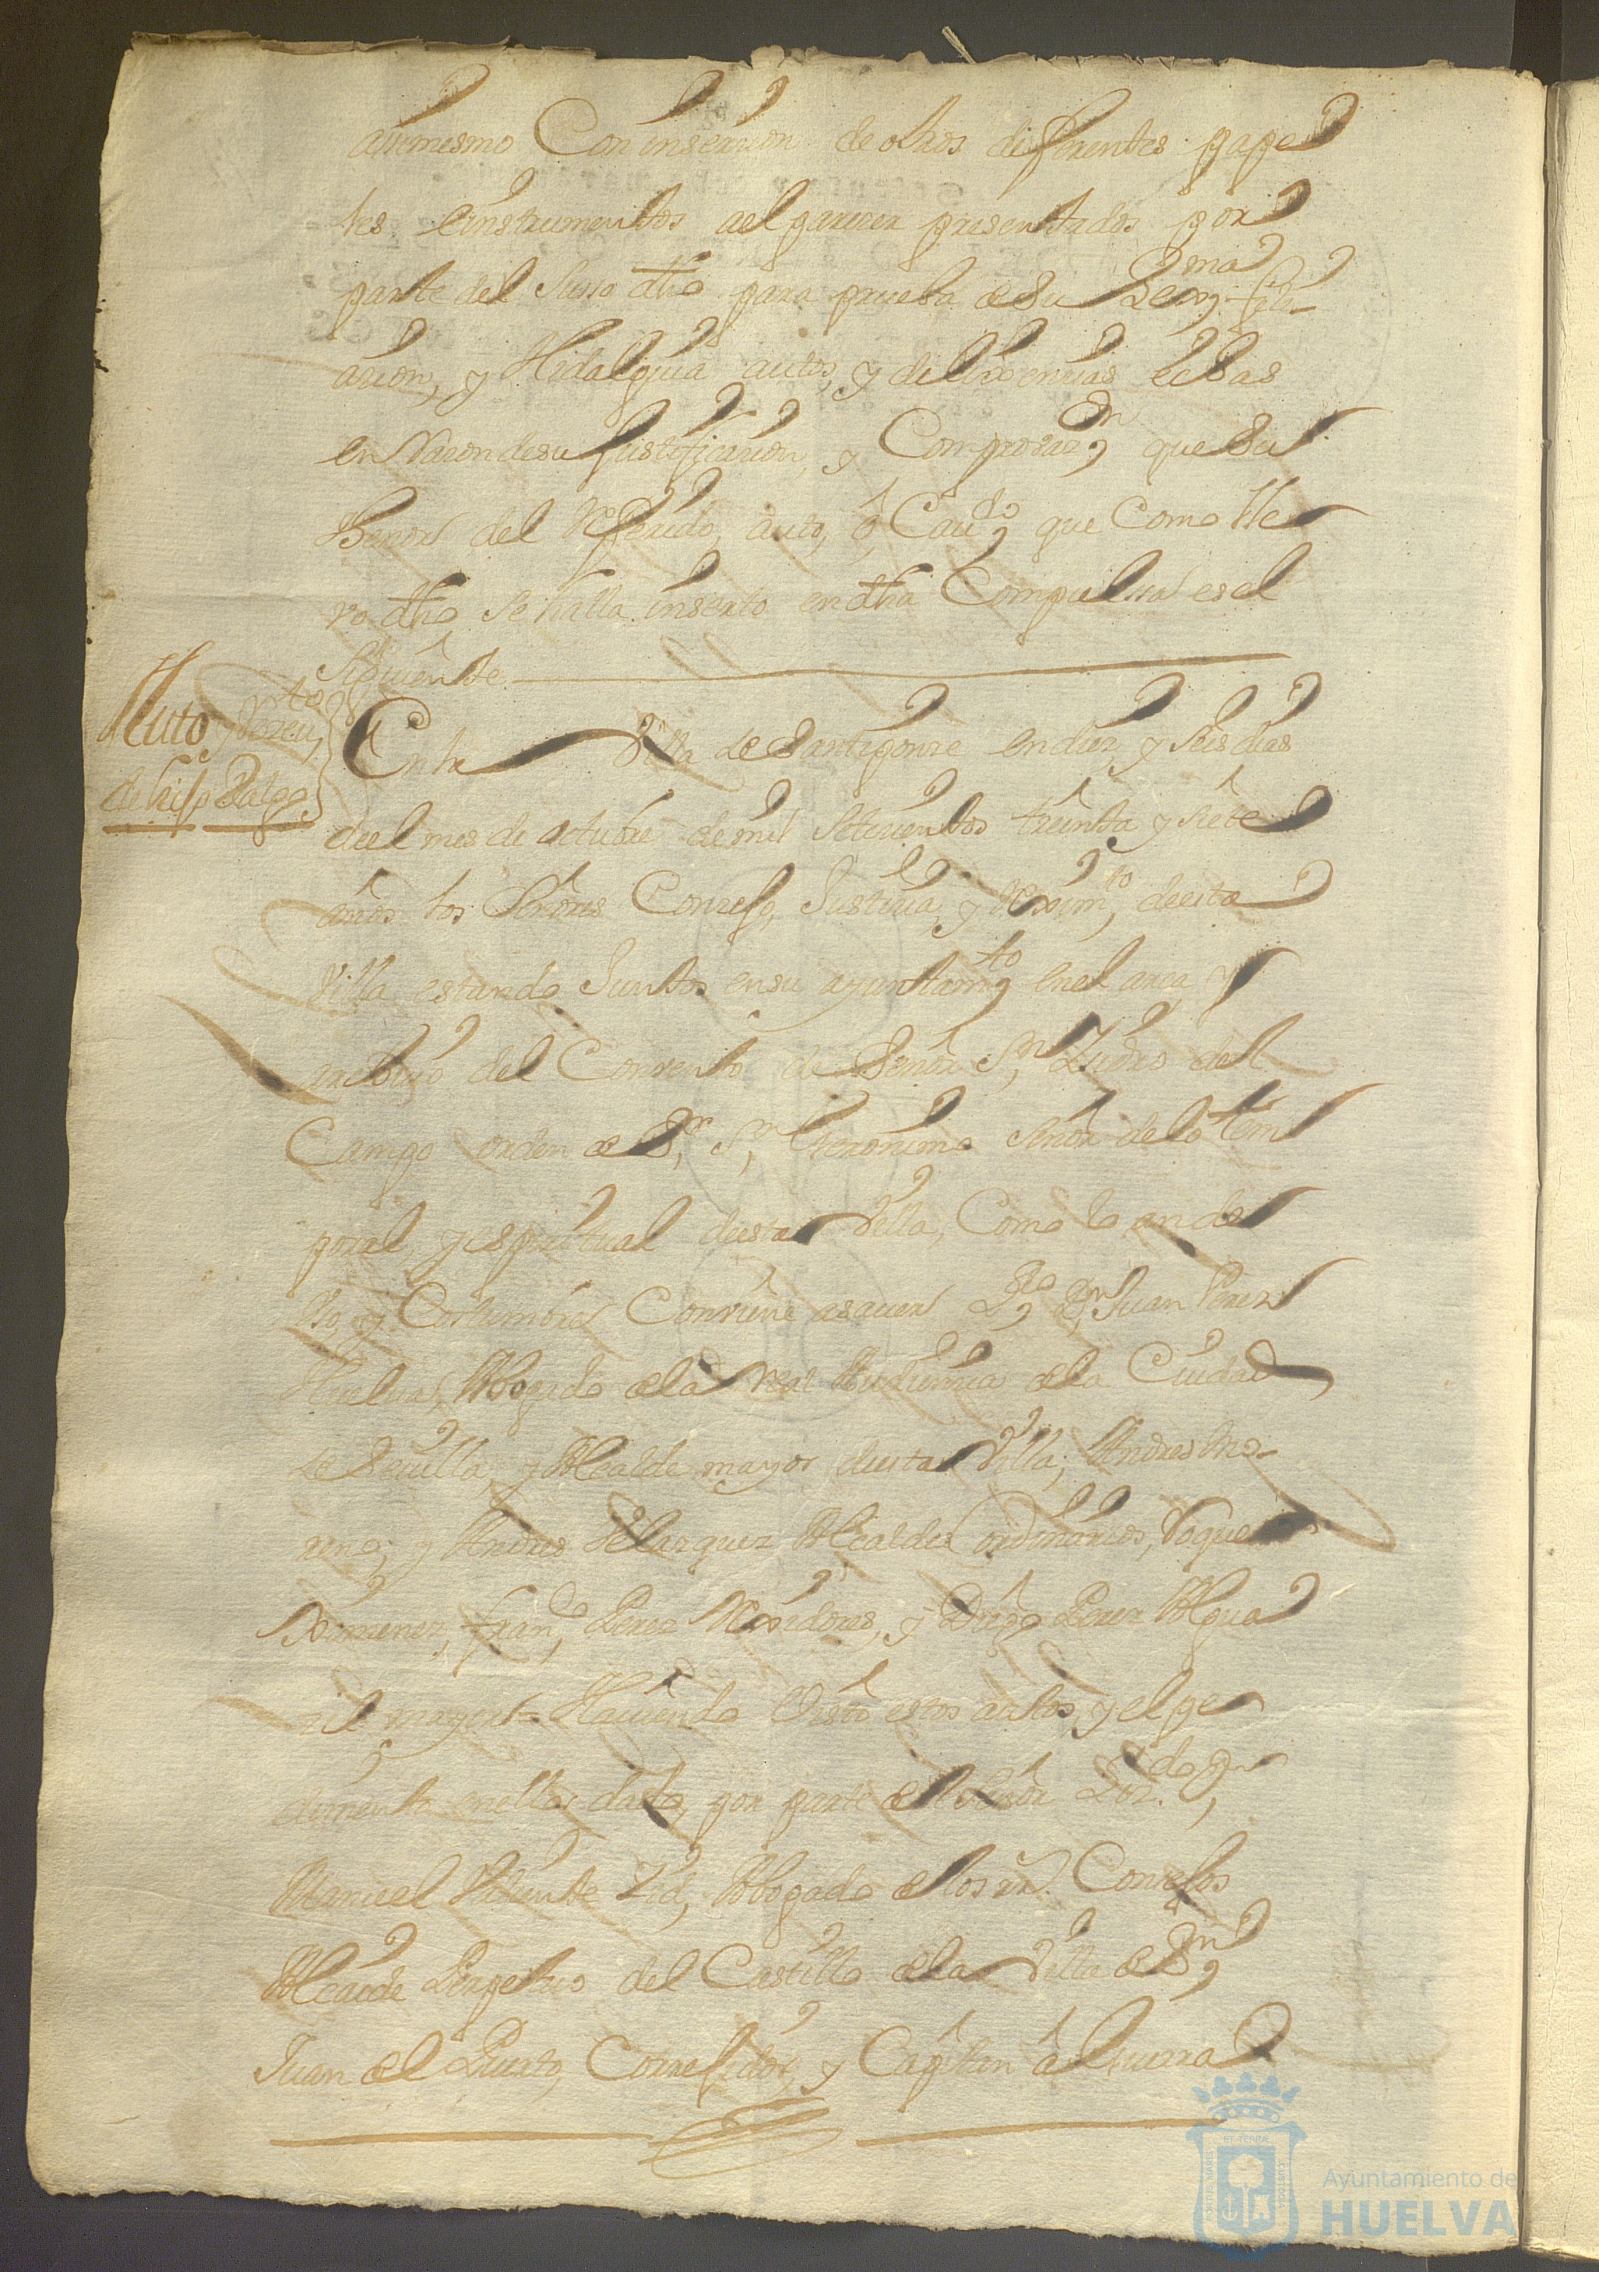 asimesmo Con insersion de otros diferentes pape
les e instrumentos a el parecer presentados por
parte del Susso dho para prueba de su Lexma filia-
acion, y Hidalguia autos, y dilixencias echas
en Razon desu Justificacion, y Comprobazn que Su
thenor del Referido, auto, ô, Caudo que Como lle
vo dho Se halla inserto en dha Compulssa es el
Siguiente
Auto
de hijo dalgo
En la Villa de Santiponze en diez, y seis dias
de el mes de octubre de mil Setecientos treinta y siete
años los Señores Consejo, Justicia, y Reximto de esta
Villa estando Juntos en su ayuntamto en el area y
del Convento de Señor Sn Isidro del
Campo orden de Sr, Sn, Geronimo Señor de lo tem
poral, y espiritual de esta Villa, Como lo an de
Vso, y Costumbre Conviene asauer Ldo Dn Juan Perez
Huelua, Abogado de la real Audiencia de la Ciudad
de Seuilla, y Alcalde mayor de esta Villa, Andres Mo-
reno, y Andres Velazquez Alcaldes ordinarios, Roque
Ximenez, Franco, Perez Rexidores, y Diego Perez Algua
zil mayor Hauiendo Visto estos autos, y el pe
dimento en ellos dado, por parte de el Señor Lizdo Dn
Manuel Vicente Zid, Abogado de los rs. Consejos
Alcaide Perpetuo del Castillo de la Villa de Sn
Juan de el Puerto, Correjidor, y Capitan â Guerra
Ayuntamiento de
HUELVA